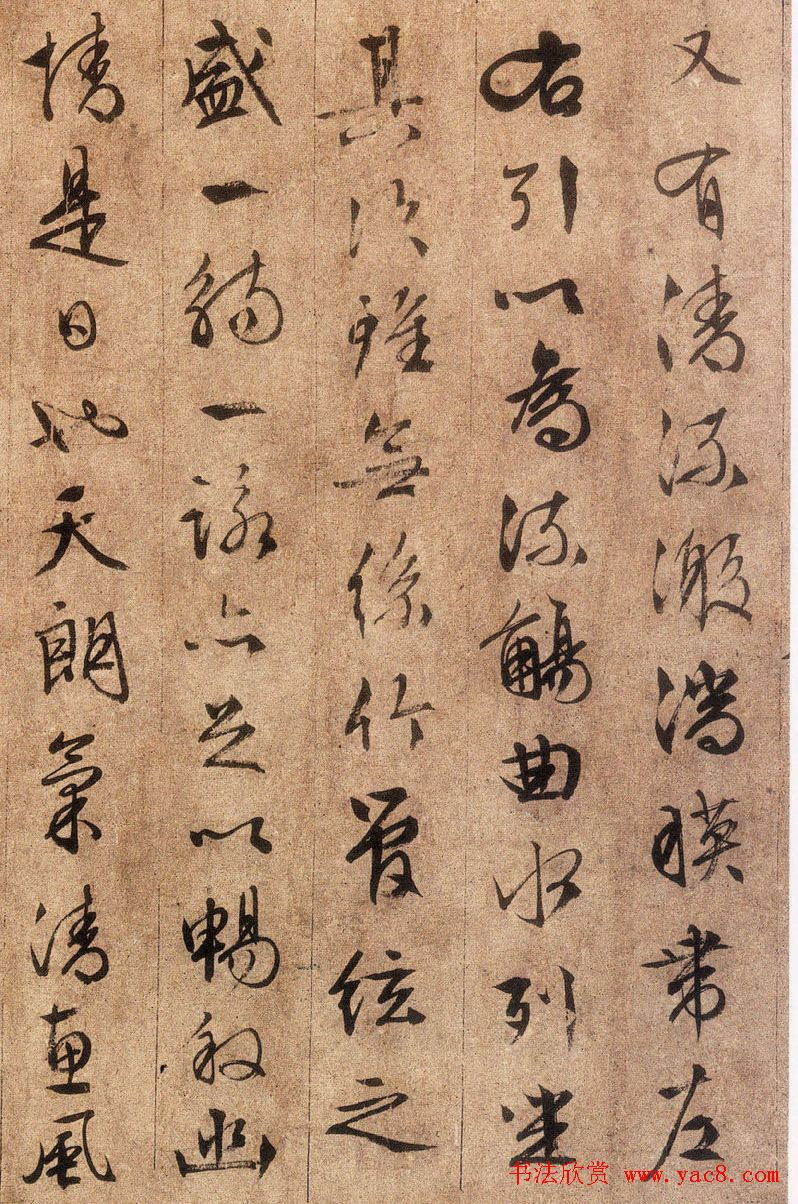 又有清流激湍暎帶左
右引以為流觴曲水列坐
其次雖無絲竹管絃之
盛一觴一詠亦足以暢叙幽
情是日也天朗氣清惠風
书法欣赏 www.yac8.com